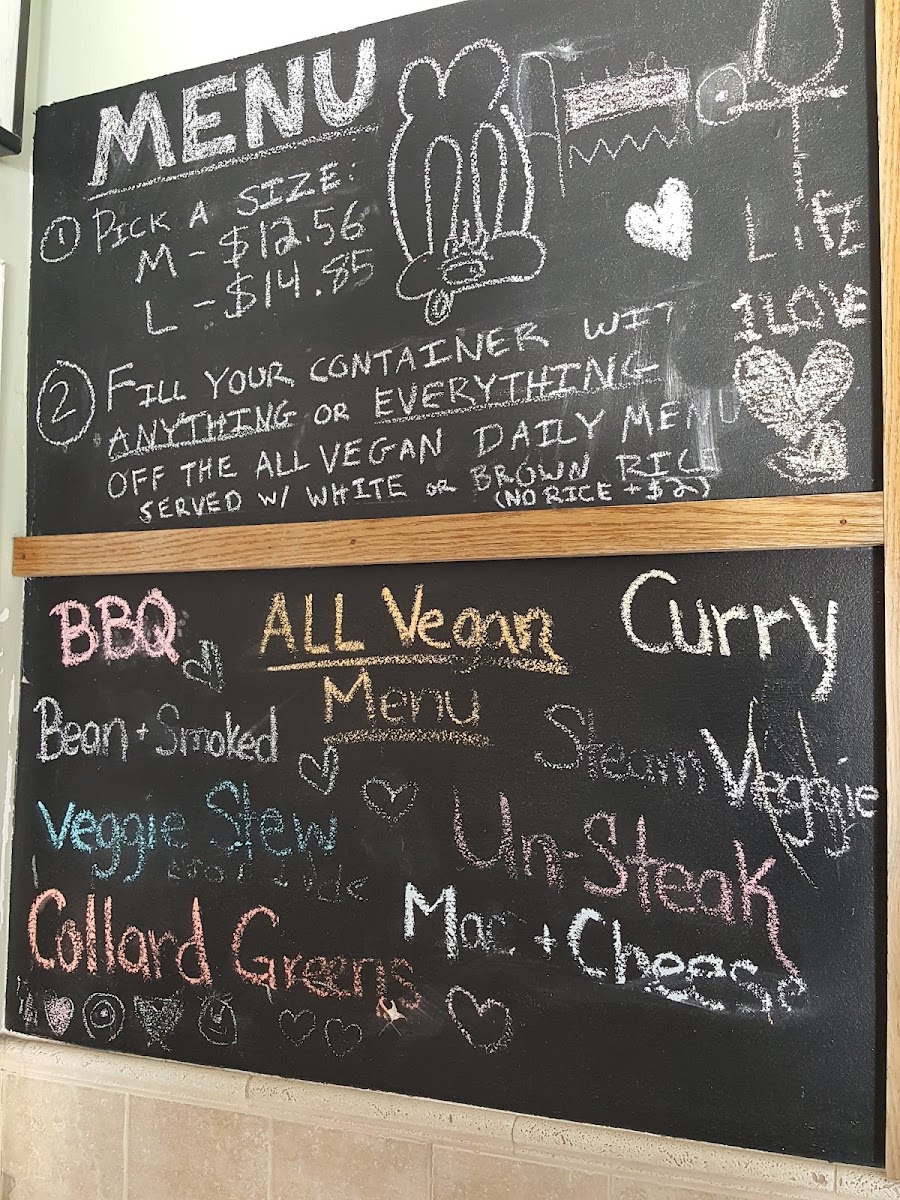 MENU
① PICK A SIZE:
M - $12.56
L - $14.85
LIFE
I LOVE
② FILL YOUR CONTAINER WIT
ANYTHING OR EVERYTHING
OFF THE ALL VEGAN DAILY MENU
SERVED W/ WHITE OR BROWN RICE
(NO RICE + $2)
BBQ
ALL Vegan
Menu
Curry
Bean + Smoked
Steam Veggie
Veggie Stew
Un-Steak
Collard Greens
Mac + Cheese